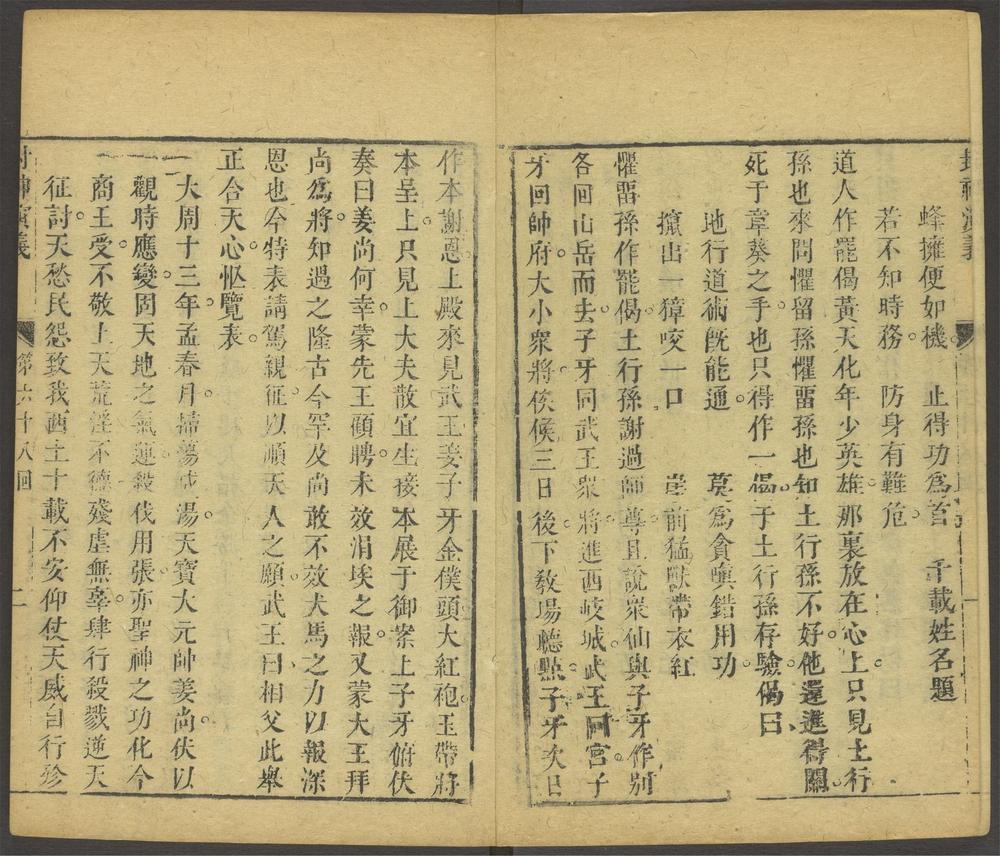 封神演義
蜂擁便如機　止得功爲首　千載姓名題
若不知時務　防身有難危
道人作罷偈黃天化年少英雄那裏放在心上只見土行
孫也來問懼留孫懼畱孫也知土行孫不好他還進得關
死于韋葵之手也只得作一偈于土行孫存驗偈曰
地行道術旣能通　莫爲貪嗔錯用功
攛出一獐咬一口　崖前猛獸帶衣紅
懼畱孫作罷偈土行孫謝過師尊且說衆仙與子牙作別
各回山岳而去子牙同武王衆將進西岐城武王回宮子
牙回帥府大小衆將俟候三日後下敎場聽點子牙次日
作本謝恩上殿來見武王姜子牙金僕頭大紅砲玉帶將
本呈上只見上大夫散宜生接本展于御案上子牙俯伏
奏曰姜尚何幸蒙先王顧聘未效涓埃之報又蒙大王拜
尚爲將知遇之隆古今罕及尚敢不效犬馬之力以報深
恩也今特表請駕親征以順天人之願武王曰相父此舉
正合天心怄覽表
大周十三年孟春月掃蕩成湯天寶大元帥姜尚伏以
觀時應變固天地之氣運殺伐用張亦聖神之功化今
商王受不敬上天荒淫不德殘虐無辜肆行殺戮逆天
征討天愁民怨致我西土十載不安仰仗天威自行殄
封神演義　第六十八回　二